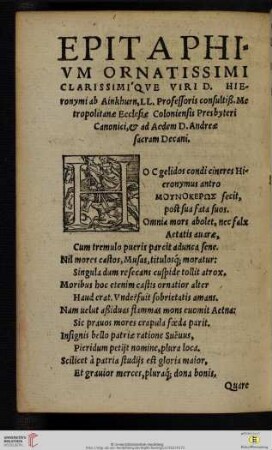 EPITAPHI-
VM ORNATISSIMI
CLARISSIMI'QVE VIRI D. HIE-
ronymi ab Ainkhurn, LL. Professoris consultiss. Me
tropolitanæ Ecclesiæ Coloniensis Presbyteri
Canonici, & ad Aedem D. Andreæ
sacram Decani.
HOC gelidos condi cineres Hi-
eronymus antro
ΜΟΥΝΟΚΕΡΩΣ fecit,
post sua fata suos.
Omnia mors abolet, nec falx
Aetatis auaræ,
Cum tremulo pueris parcit adunca sene.
Nil mores castos, Musas, titulosq; moratur:
Singula dum resecans cuspide tollit atrox.
Moribus hoc etenim castis ornatior alter
Haud erat. Vndefuit sobrietatis amans.
Nam uelut assiduas flammas mons euomit Aetna:
Sic prauos mores crapula fœda parit.
Insignis bello patriæ ratione Sueuus,
Pieridum petijt nomine, plura loca.
Scilicet à patria studijs est gloria maior,
Et grauior merces, pluraq; dona bonis.
Quare